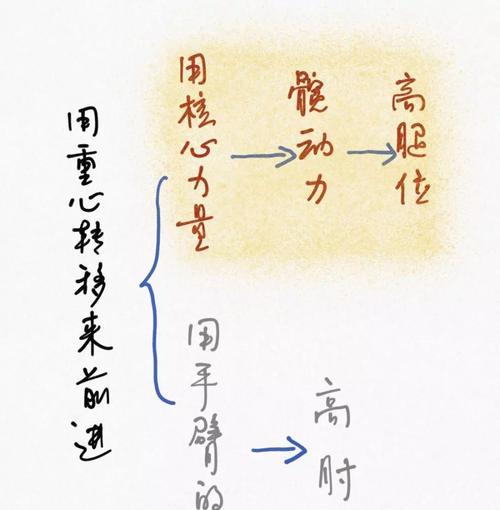 用重心转移来前进
用核心力量
髋动力
高腿位
用手臂的
高肘